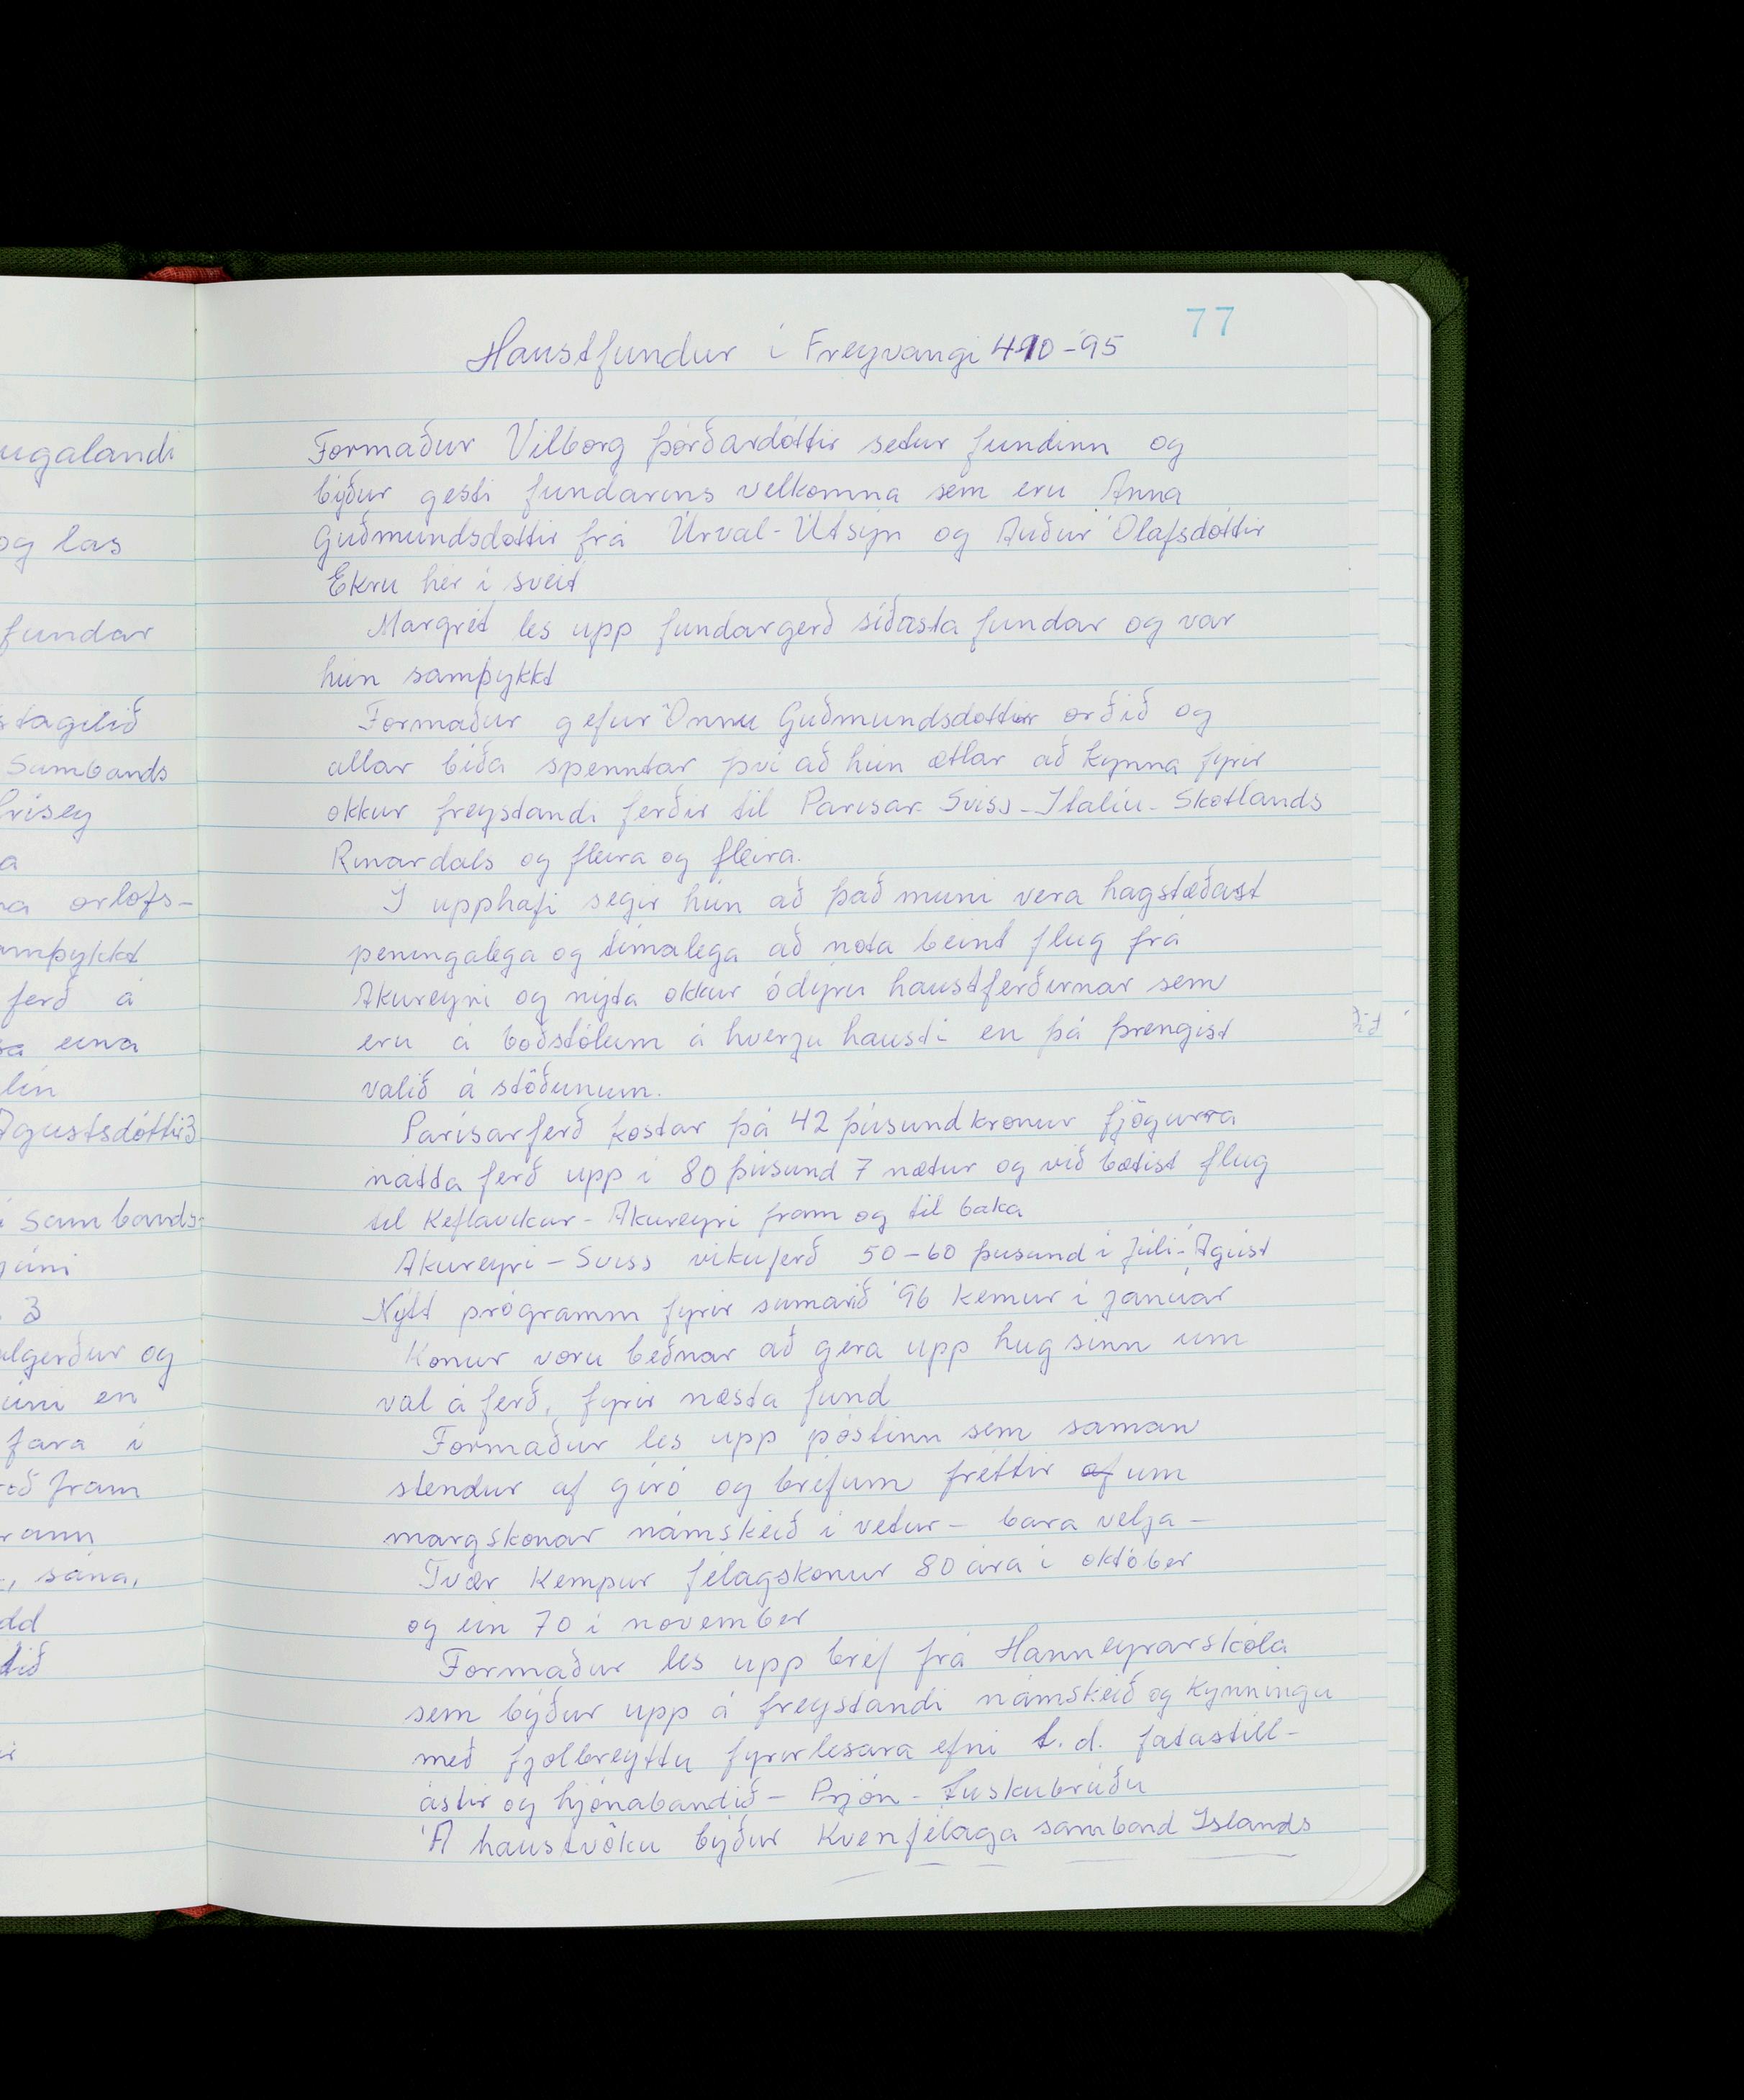 77
Haustfundur í Freyvangi 4-10-'95
Formaður Vilborg Þórðardóttir setur fundinn og
býður gesti fundarins velkomna sem eru Anna
Guðmundsdóttir frá Úrval-Útsýn og Auður Ólafsdóttir
Ekru hér í sveit
Margrét les upp fundargerð síðasta fundar og var
hún samþykkt
Formaður gefur Önnu Guðmundsdottir orðið og
allar bíða spenntar því að hún ætlar að kynna fyrir
okkur freystandi ferðir til Parísar - Sviss - Italíu - Skotlands
Rínardals og fleira og fleira.
I upphafi segir hún að það muni vera hagstæðast
peningalega og tímalega að nota beint flug frá
Akureyri og nýta okkur ódýru haustferðirnar sem
eru á boðstólum á hverju hausti en þá þrengist
valið á stöðunum.
Parísarferð kostar þá 42 þúsundkronur fjögurra
nátta ferð upp í 80 þúsund 7 nætur og við bætist flug
til Keflavíkur - Akureyri fram og til baka
Akureyri - Sviss vikuferð 50-60 þusund í Júlí-Ágúst
Nýtt prógramm fyrir sumarið '96 kemur í janúar
Konur voru beðnar að gera upp hug sinn um
val á ferð, fyrir næsta fund
Formaður les upp póstinn sem saman
stendur af gíró og bréfum fréttir af um
margskonar námskeið í vetur - bara velja -
Tvær Kempur félagskonur 80 ára í október
og ein 70 í november
Formaður les upp bréf frá Hanneyrarskóla
sem býður upp á freystandi námskeið og Kynningu
með fjölbreyttu fyrirlesara efni t.d. fatastíll-
ástir og hjónabandið - Prjón - Tuskubrúðu
Á haustvöku býður Kvenfélaga samband Islands
ugalandi
og las
fundar
stagilið
Sambands
hrísey
a
na orlofs-
amþykkt
ferð á
sa eina
lín
Ágústsdóttir 3
í Sambands-
júní
3
algerður og
júní en
fara í
eð fram
rann
, sána,
dd
tið